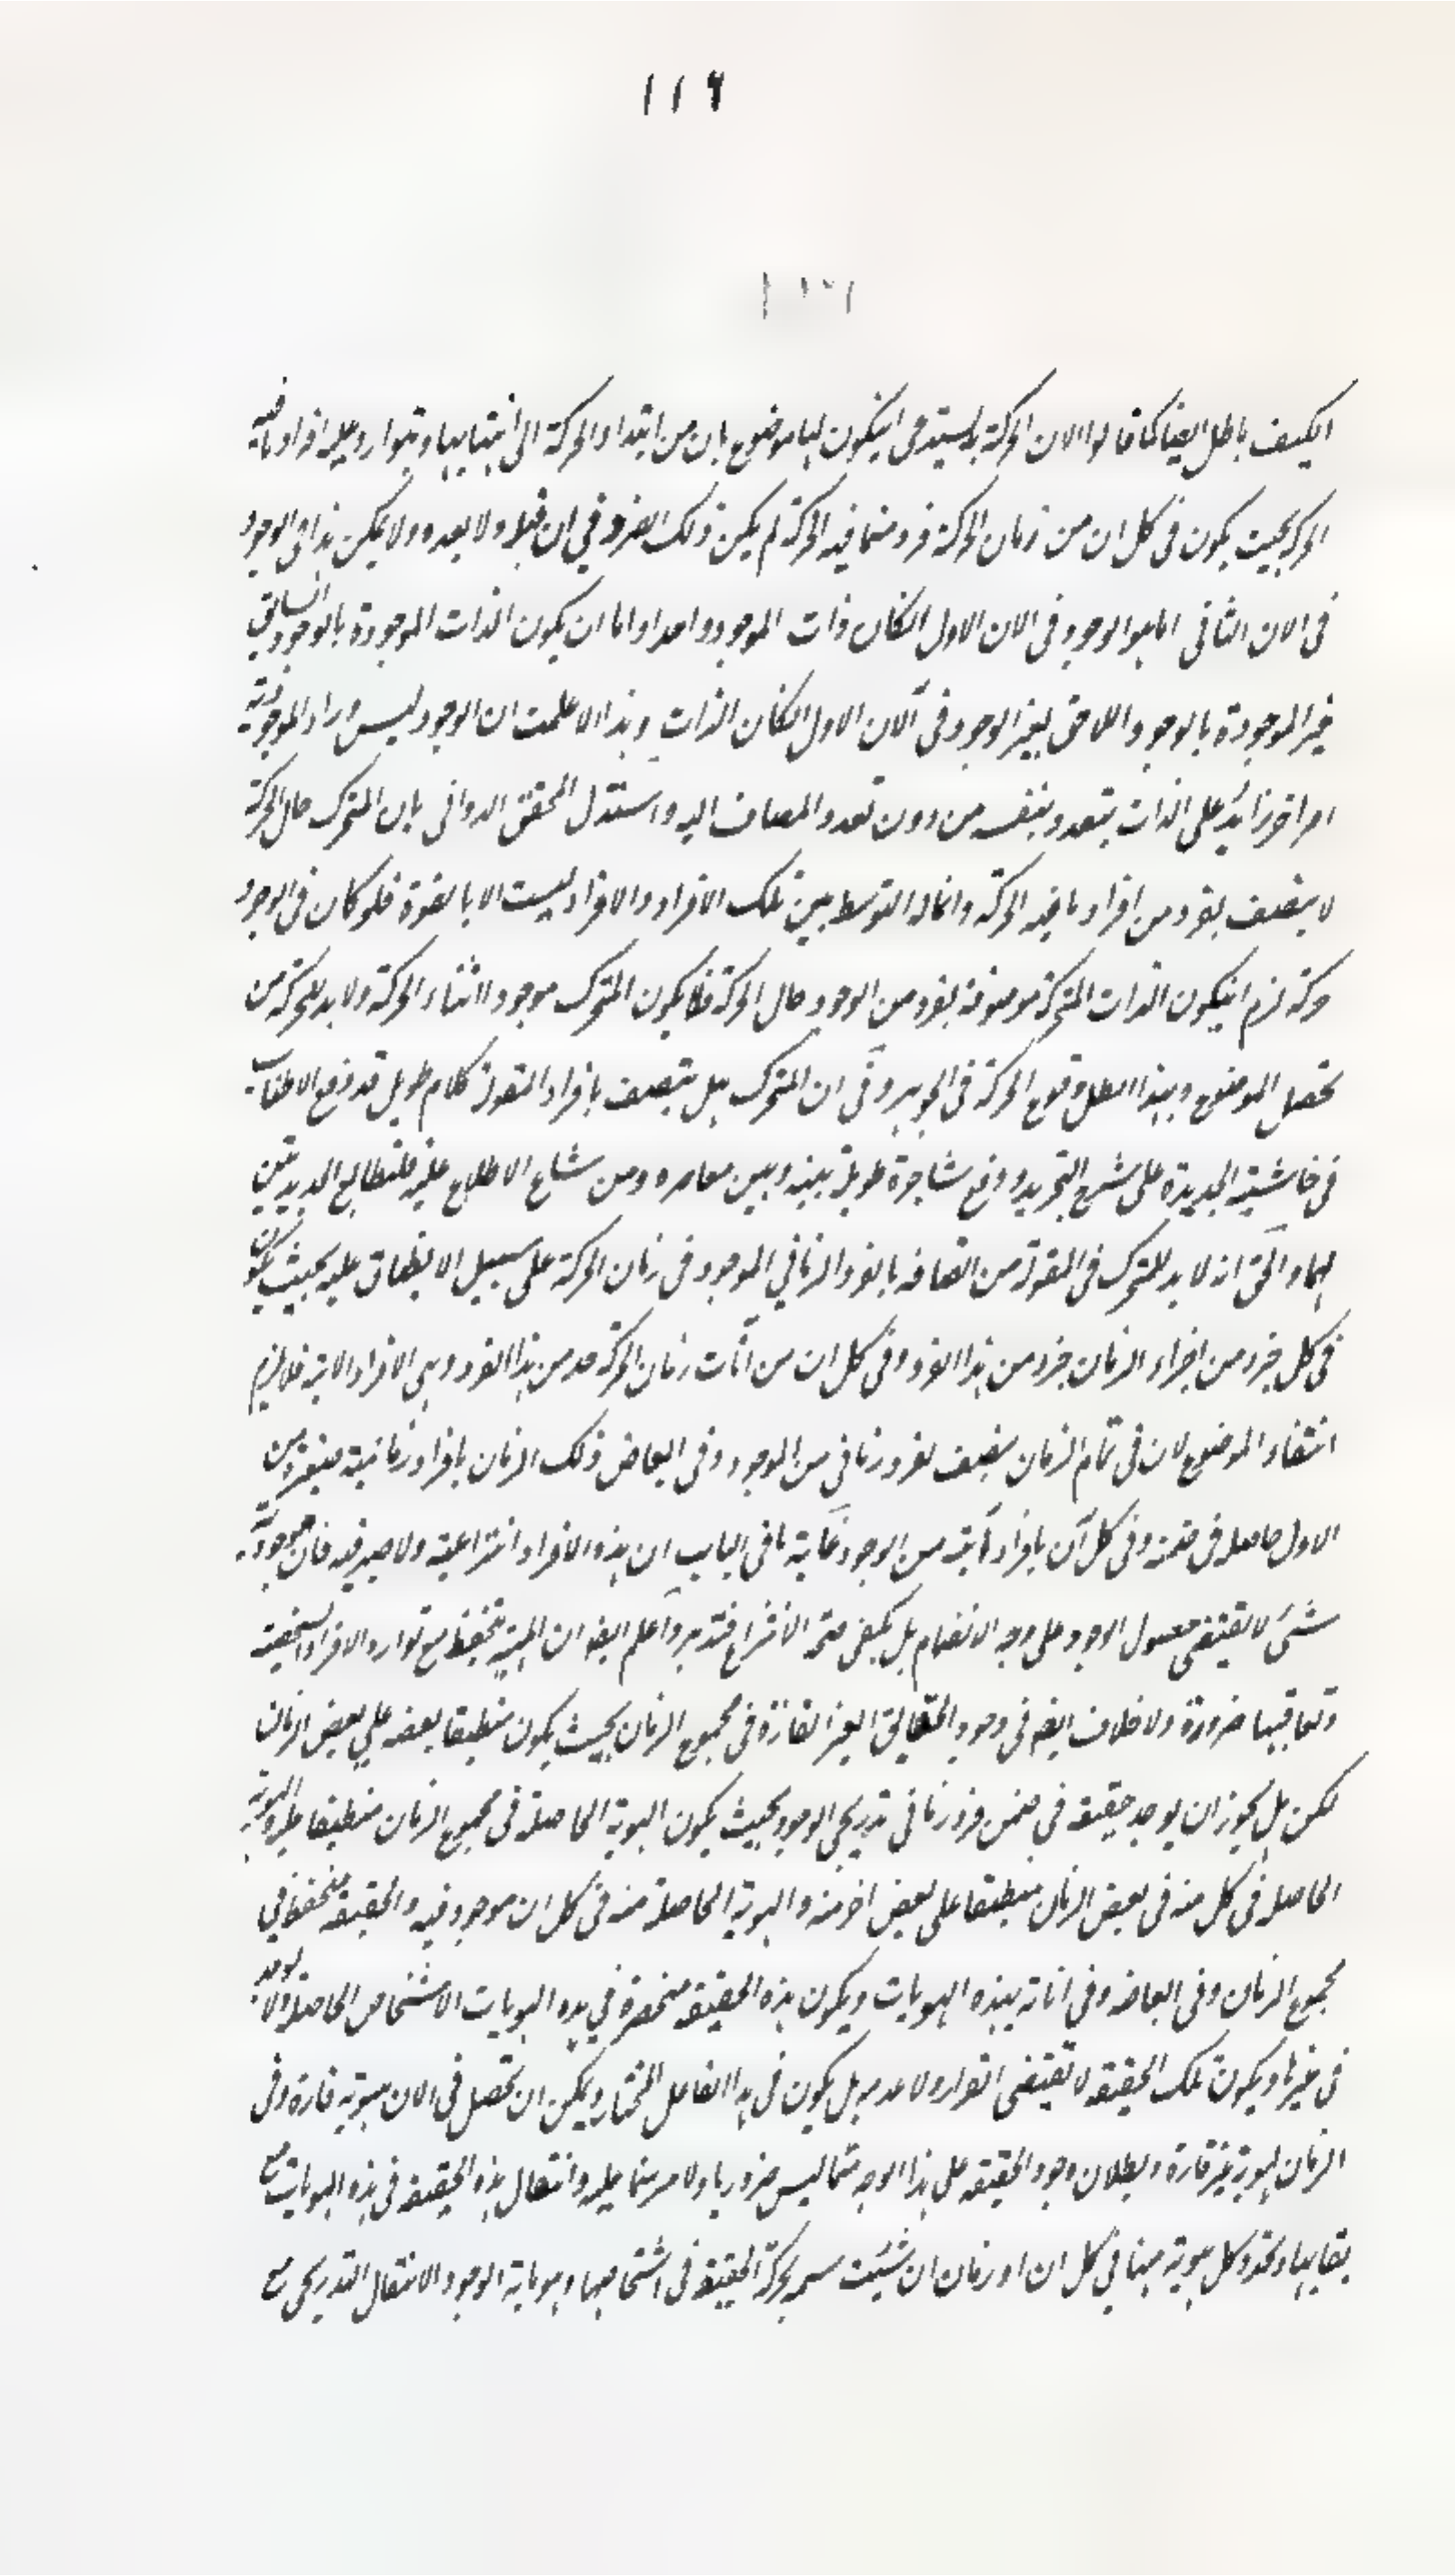 ١١٦
الكيف باطل ايضا كما قالوا لان الحركة يستدعى ان يكون لها موضوع بان من ابتداء الحركة الى انتهايها ويتوارد عليه افراد ما فيه
الحركة بحيث يكون فى كل ان من زمان الحركة فرد مما فيه الحركة لم يكن ذلك الفرد في ان قبله ولا بعده ولا يمكن هذا فى الوجود
فى الان الثانى اما هو الوجود فى الان الاول لكان ذات الموجود واحدا واما ان يكون الذات الموجودة بالوجود السابق
غير الموجودة بالوجود اللاحق بغير الوجود فى الآن الاول لكان الذات وهذا لما علمت ان الوجود ليس وراء الموجودية
امرا اخر زايد على الذات يتعدد بنفسه من دون تعدد المضاف اليه واستدل المحقق الدوانى بان المتحرك حال الحركة
لا يتصف بفرد من افراد ما فيه الحركة وانما له التوسط بين تلك الافراد والافراد ليست الا بالقوة فلو كان فى الوجود
حركة لزم ان يكون الذات المتحركة موصوفة بفرد من الوجود حال الحركة فلا يكون المتحرك موجودا اثناء الحركة ولا بد للحركة من
تحصل الموضوع وبهذا ابطل وقوع الحركة فى الجوهر وفى ان المتحرك هل يتصف بافراد المقولة كلام طويل قد وقع الاطناب
فى حاشيته الجديدة على شرح التجريد ووقع مشاجرة طويلة بينه وبين معاصره ومن شاء الاطلاع عليه فليطالع الجديدتين
لهما والحق انه لا بد للمتحرك فى المقولة من اتصافه بالفرد الزماني الموجود فى زمان الحركة على سبيل الانطباق عليه بحيث يكون
فى كل جزء من اجزاء الزمان جزء من هذا الفرد وفى كل ان من آنات زمان الحركة حد من هذا الفرد وهى الافراد الآنية فلا يلزم
انتفاء الموضوع لان فى تمام الزمان يتصف بفرد زمانى من الوجود وفى ابعاض ذلك الزمان بافراد زمانية صغيرة من
الاول حاصلة فى ضمنه وفى كل آن بافراد آنية من الوجود غاية ما فى الباب ان هذه الافراد انتزاعية ولا ضير فيه فان موجودية
شئ لا يقتضى حصول الوجود على وجه الانضمام بل يكفى صحة الانتزاع فتدبر واعلم ايضا ان المهية تنحفظ مع توارد الافراد الشخصية
وتعاقبها ضرورة ولا خلاف ايضا فى وجود الحقايق الغير القارة فى مجموع الزمان بحيث يكون منطبقا بعضه على بعض الزمان
لكن هل يجوز ان يوجد حقيقة في ضمن فرد زمانى تدريجى الوجود بحيث يكون الهوية الحاصلة فى مجموع الزمان منطبقا عليه والهوية
الحاصلة فى كل منه فى بعض الزمان منطبقا على بعض اخر منه والهوية الحاصلة منه فى كل ان موجود فيه والحقيقة منحفظة في
مجموع الزمان وفى ابعاضه وفى اناته بهذه الهويات ويكون هذه الحقيقة منحصرة في هذه الهويات الاشخاص الحاصلة ولا يوجد
فى غيرها ويكون تلك الحقيقة لا تقتضى القرار ولا عدمه بل يكون فى يد الفاعل المختار ويمكن ان تحصل فى الان بهوية قارة وفى
الزمان بهوية غير قارة وبطلان وجود الحقيقة على هذا الوجه مما ليس ضروريا ولا مبرهنا عليه وانتقال هذه الحقيقة فى هذه الهويات مع
بقايها وتجدد كل هوية منها في كل ان او زمان ان شئت سم بحركة الحقيقة فى اشخاصها وهوياته الوجود الانتقال التدريجى مع